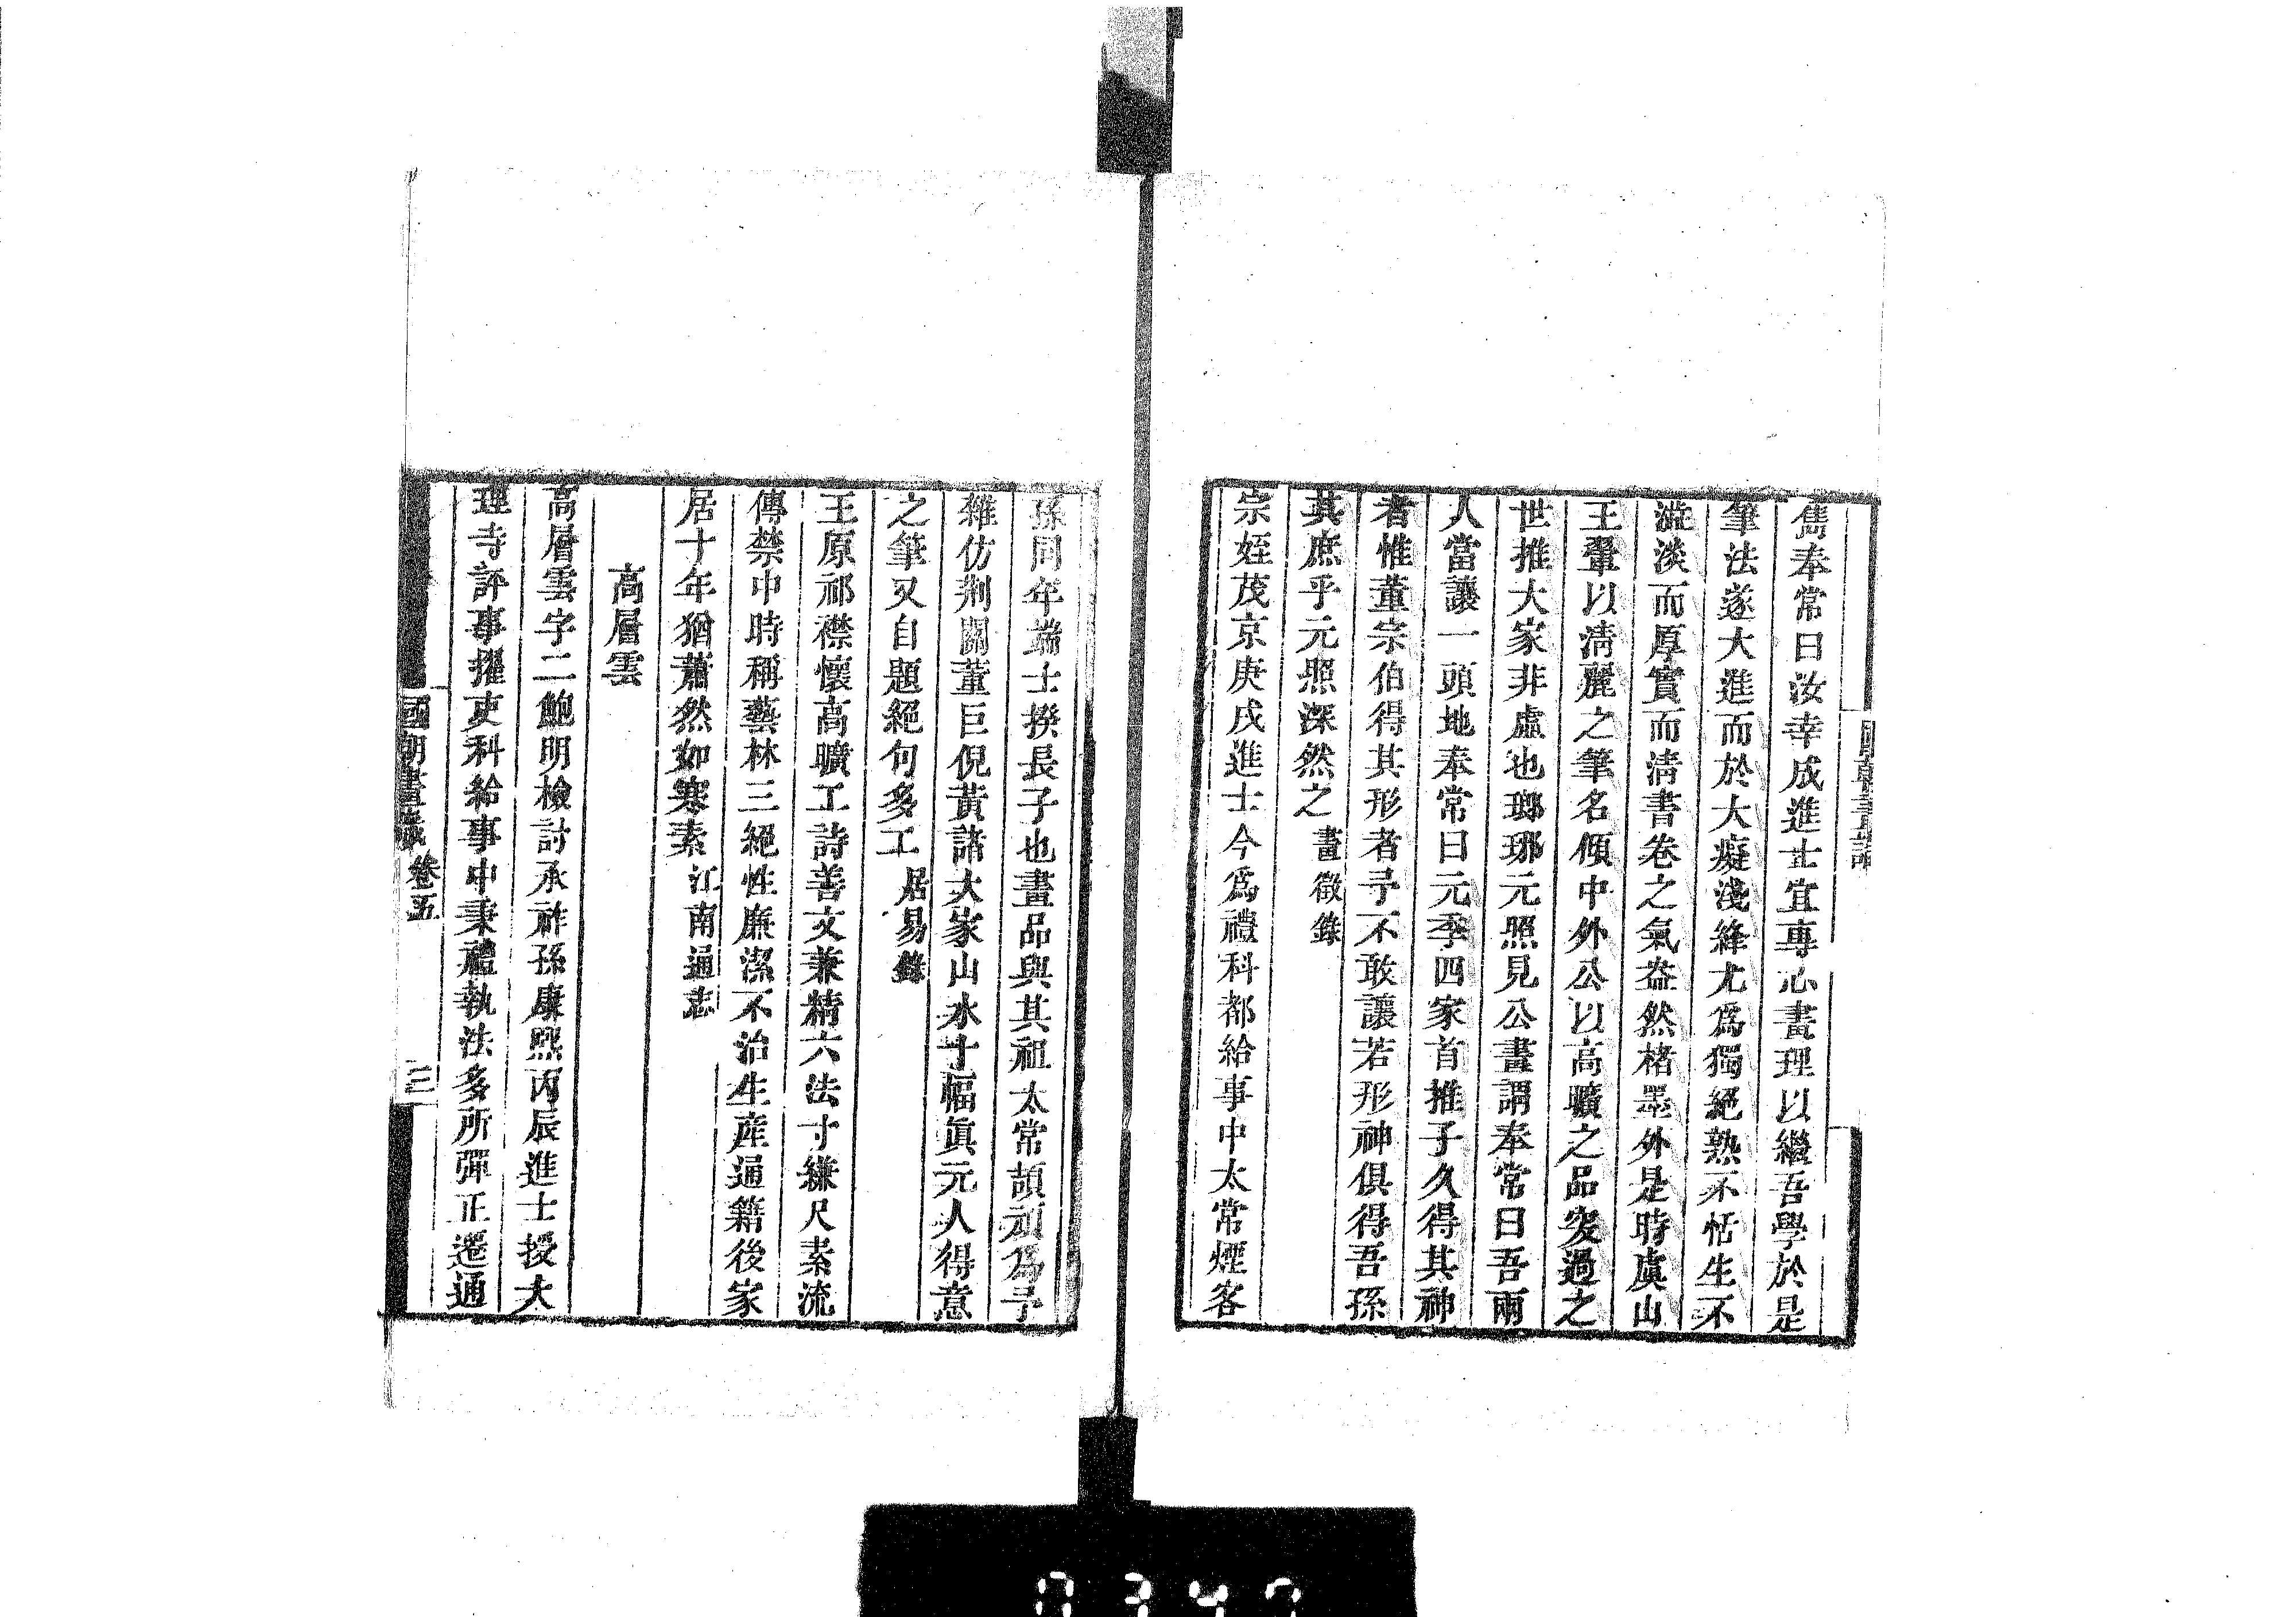 雋奉常曰汝幸成進士宜專心畫理以繼吾學於是
筆法遂大進而於大癡淺絳尤爲獨絕熟不恬生不
澁淡而厚實而清書卷之氣盎然楮墨外是時虞山
王翬以清麗之筆名傾中外公以高曠之品突過之
世推大家非虛也瑯琊元照見公畫謂奉常曰吾兩
人當讓一頭地奉常曰元季四家首推子久得其神
者惟董宗伯得其形者予不敢讓若形神俱得吾孫
其庶乎元照深然之畫徵錄
宗姪茂京庚戌進士今爲禮科都給事中太常煙客
孫同年端士揆長子也畫品與其祖太常頡頏爲予
雜仿荆關董巨倪黃諸大家山水十幅眞元人得意
之筆又自題絕句多工居易錄
王原祁襟懷高曠工詩善文兼精六法寸縑尺素流
傳禁中時稱藝林三絕性廉潔不治生産通籍後家
居十年猶蕭然如寒素江南通志
高層雲
高層雲字二鮑明檢討承祚孫康熙丙辰進士授大
理寺評事擢吏科給事中秉禮執法多所彈正遷通
國朝畫識 卷五 三
0347